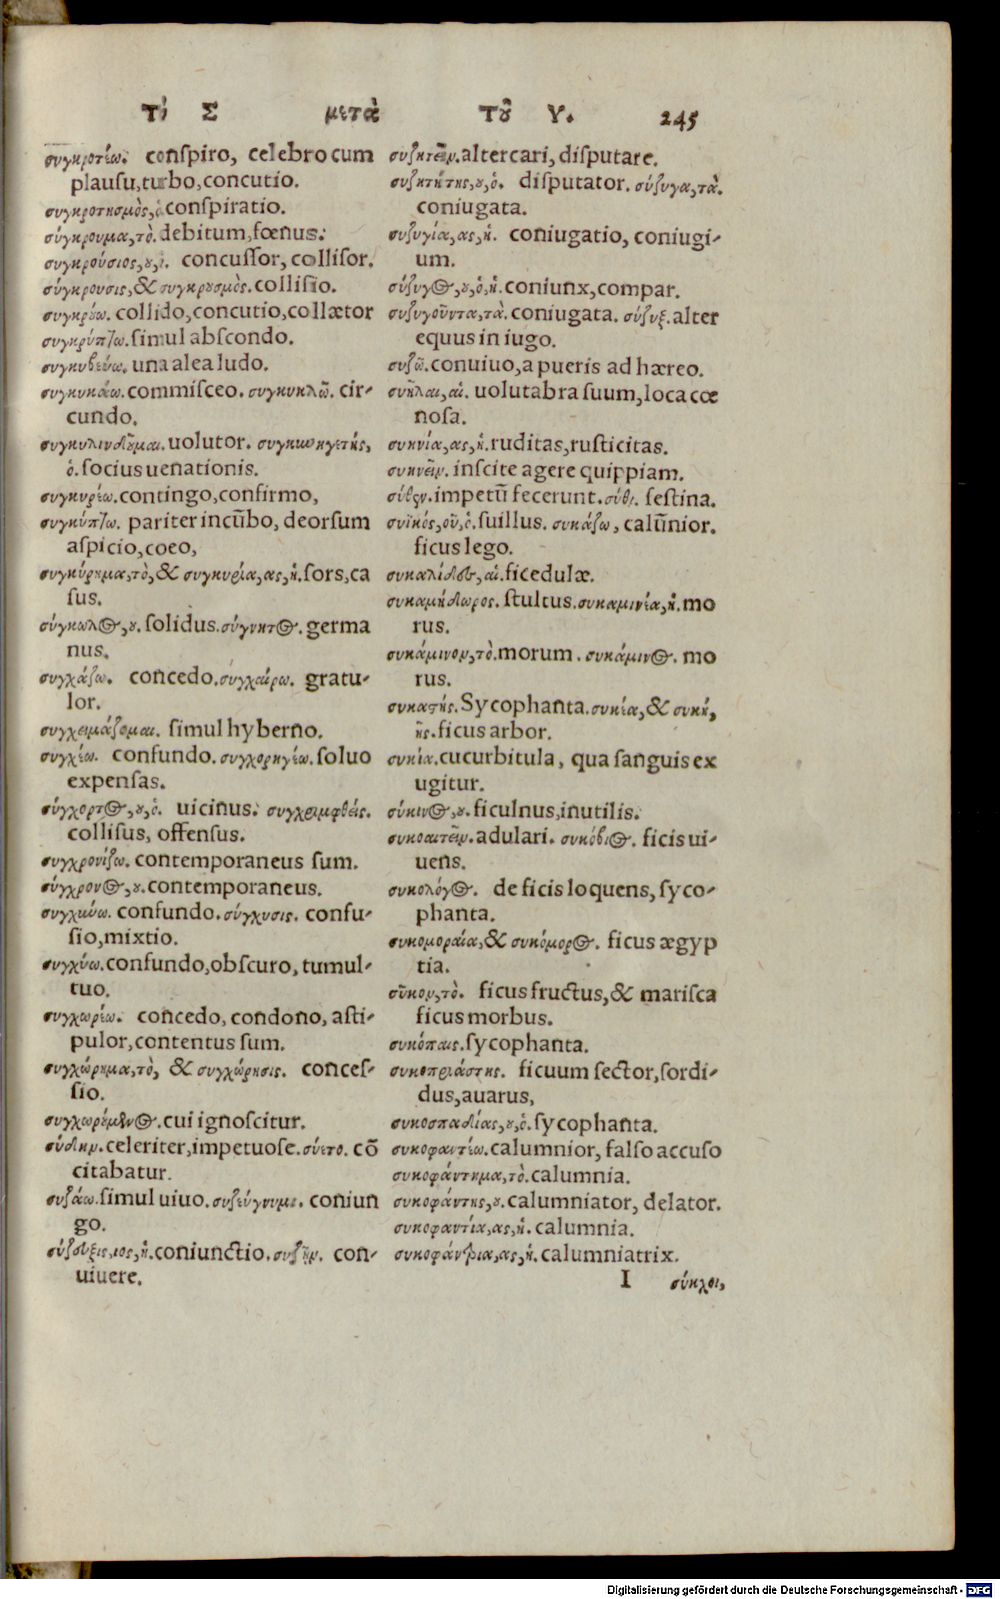 Τὸ Σ μετὰ τοῦ Υ. 245
συγκροτέω. conspiro, celebro cum
plausu, turbo, concutio.
συγκροτησμὸς, ὁ conspiratio.
σύγκρουμα, τὸ. debitum, fœnus.
συγκρούσιος, ου, ὁ. concussor, collisor.
σύγκρουσις, & συγκρουσμὸς. collisio.
συγκρούω. collido, concutio, collætor
συγκρύπτω. simul abscondo.
συγκυβεύω. una alea ludo.
συγκυκάω. commisceo. συγκυκλῶ. cir-
cundo.
συγκυλινδοῦμαι. uolutor. συγκυνηγετής,
ὁ. socius uenationis.
συγκυρέω. contingo, confirmo,
συγκύπτω. pariter incūbo, deorsum
aspicio, coeo,
συγκύρημα, τὸ, & συγκυρία, ας, ἡ. sors, ca
sus.
σύγκωλος, ου. solidus. σύγνητος. germa
nus.
συγχάζω. concedo. συγχαίρω. gratu-
lor.
συγχειμάζομαι. simul hyberno.
συγχέω. confundo. συγχορηγέω. soluo
expensas.
σύγχορτος, ου, ὁ. uicinus. συγχριμφθείς.
collisus, offensus.
συγχρονίζω. contemporaneus sum.
σύγχρονος, ου. contemporaneus.
συγχύνω. confundo. σύγχυσις. confu-
sio, mixtio.
συγχύω. confundo, obscuro, tumul-
tuo.
συγχωρέω. concedo, condono, asti-
pulor, contentus sum.
συγχώρημα, τὸ, & συγχώρησις. conces-
sio.
συγχωρούμενος. cui ignoscitur.
σύδην. celeriter, impetuose. σύετο. cō
citabatur.
συζάω. simul uiuo. συζεύγνυμι. coniun
go.
σύζευξις, ιος, ἡ. coniunctio. συζῆν. con-
uiuere.
συζητεῖν. altercari, disputare.
συζητήτης, ου, ὁ. disputator. σύζυγα, τὰ.
coniugata.
συζυγία, ας, ἡ. coniugatio, coniugi-
um.
σύζυγος, ου, ὁ, ἡ. coniunx, compar.
συζυγοῦντα, τὰ. coniugata. σύζυξ. alter
equus in iugo.
συζῶ. conuiuo, a pueris ad hæreo.
συῆλαι, αἱ. uolutabra suum, loca cœ
nosa.
συηνία, ας, ἡ. ruditas, rusticitas.
συηνεῖν. inscite agere quippiam.
σύθην. impetū fecerunt. σύθι. festina.
συϊκός, οῦ, ὁ. suillus. συκάζω, calūnior.
ficus lego.
συκαλίδες, αἱ. ficedulæ.
συκαμήδωρος. stultus. συκαμινέα, ἡ. mo
rus.
συκάμινον, τὸ. morum. συκάμινος. mo
rus.
συκαστής. Sycophanta. συκέα, & συκῆ,
ῆς. ficus arbor.
συκία. cucurbitula, qua sanguis ex
ugitur.
σύκινος, ου. ficulnus, inutilis.
συκοαιτεῖν. adulari. συκόβιος. ficis ui-
uens.
συκολόγος. de ficis loquens, syco-
phanta.
συκομοραία, & συκόμορος. ficus ægyp
tia.
σῦκον, τὸ. ficus fructus, & marisca
ficus morbus.
συκόπαις. sycophanta.
συκοπριάστης. ficuum sector, sordi-
dus, auarus,
συκοσπαδίας, ου, ὁ. sycophanta.
συκοφαντέω. calumnior, falso accuso
συκοφάντημα, τὸ. calumnia.
συκοφάντης, ου. calumniator, delator.
συκοφαντία, ας, ἡ. calumnia.
συκοφάντρια, ας, ἡ. calumniatrix.
I σύκχοι,
Digitalisierung gefördert durch die Deutsche Forschungsgemeinschaft - DFG